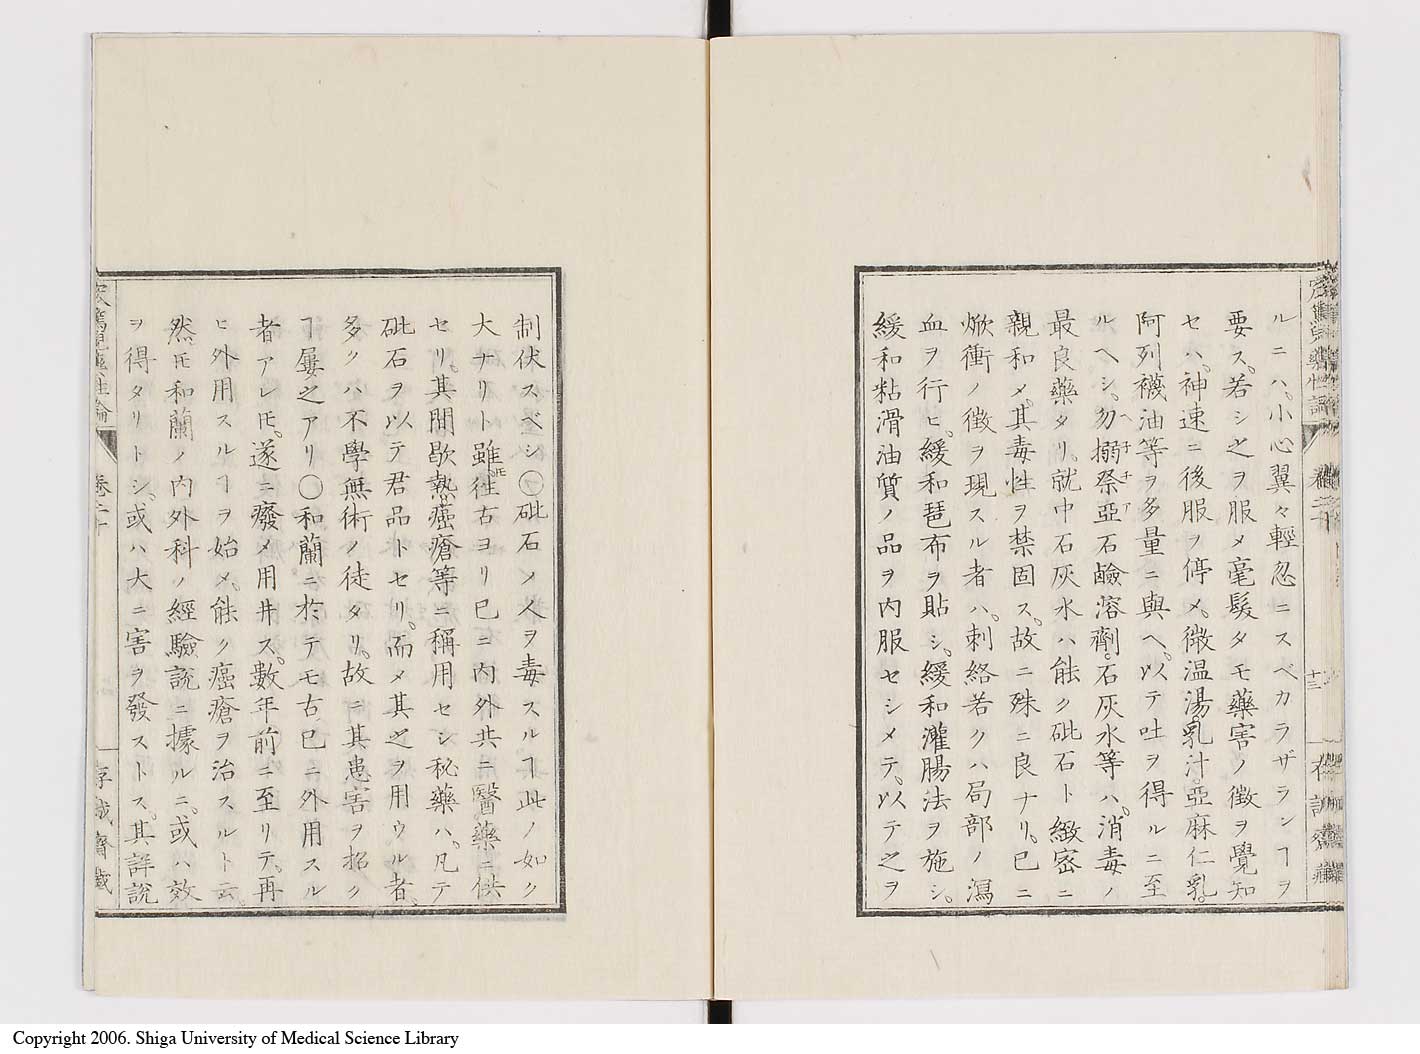 ルニハ。小心翼々輕忽ニスベカラザランヿヲ
要ス。若シ之ヲ服メ毫髪タモ藥害ノ徴ヲ覺知
セハ。神速ニ後服ヲ停メ。微温湯。乳汁。亞麻仁乳。
阿列襪油等ヲ多量ニ與ヘ。以テ吐ヲ得ルニ至
ルヘシ。勿搦祭亞石鹼溶劑。石灰水等ハ。消毒ノ
ヘ子チア
最良藥タリ。就中石灰水ハ能ク砒石ト緻密ニ
親和メ。其毒性ヲ禁固ス。故ニ殊ニ良ナリ。已ニ
焮衝ノ徴ヲ現スル者ハ。刺絡若クハ局部ノ瀉
血ヲ行ヒ。緩和琶布ヲ貼シ。緩和灌腸法ヲ施シ。
緩和粘滑油質ノ品ヲ内服セシメテ。以テ之ヲ
十三
制伏スベシ○砒石ノ人ヲ毒スルヿ此ノ如ク
大ナリト雖𪜈。往古ヨリ已ニ内外共ニ醫藥ニ供
セリ。其間歇熱。癌瘡等ニ稱用セシ秘藥ハ。凡テ
砒石ヲ以テ君品トセリ。而メ其之ヲ用ウル者。
多クハ不學無術ノ徒タリ。故ニ其患害ヲ招ク
ヿ屢之アリ○和蘭ニ於テモ古已ニ外用スル
者アレ𪜈。遂ニ癈メ用井ス。數年前ニ至リテ。再
ヒ外用スルヿヲ始メ。能ク癌瘡ヲ治スルト云。
然𪜈和蘭ノ内外科ノ經驗説ニ據ルニ。或ハ效
ヲ得タリトシ。或ハ大ニ害ヲ發ストス。其詳説
卷二十
Copyright 2006. Shiga University of Medical Science Library